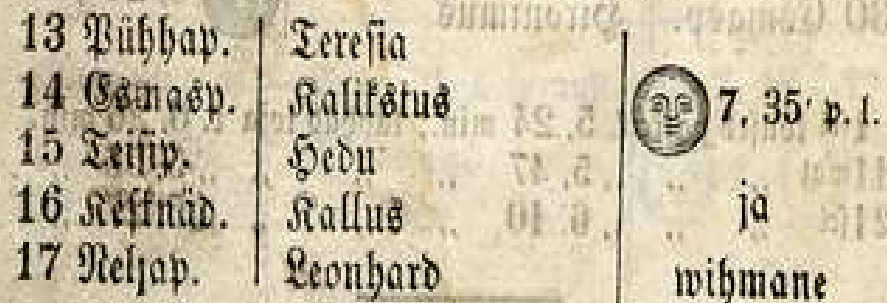 13 Pühhap. Teresia
14 Esmasp. Kalikstus 7, 35' p. l.
15 Teisip. Hedu
16 Kesknäd. Kallus ja
17 Neljap. Leonhard wihmane